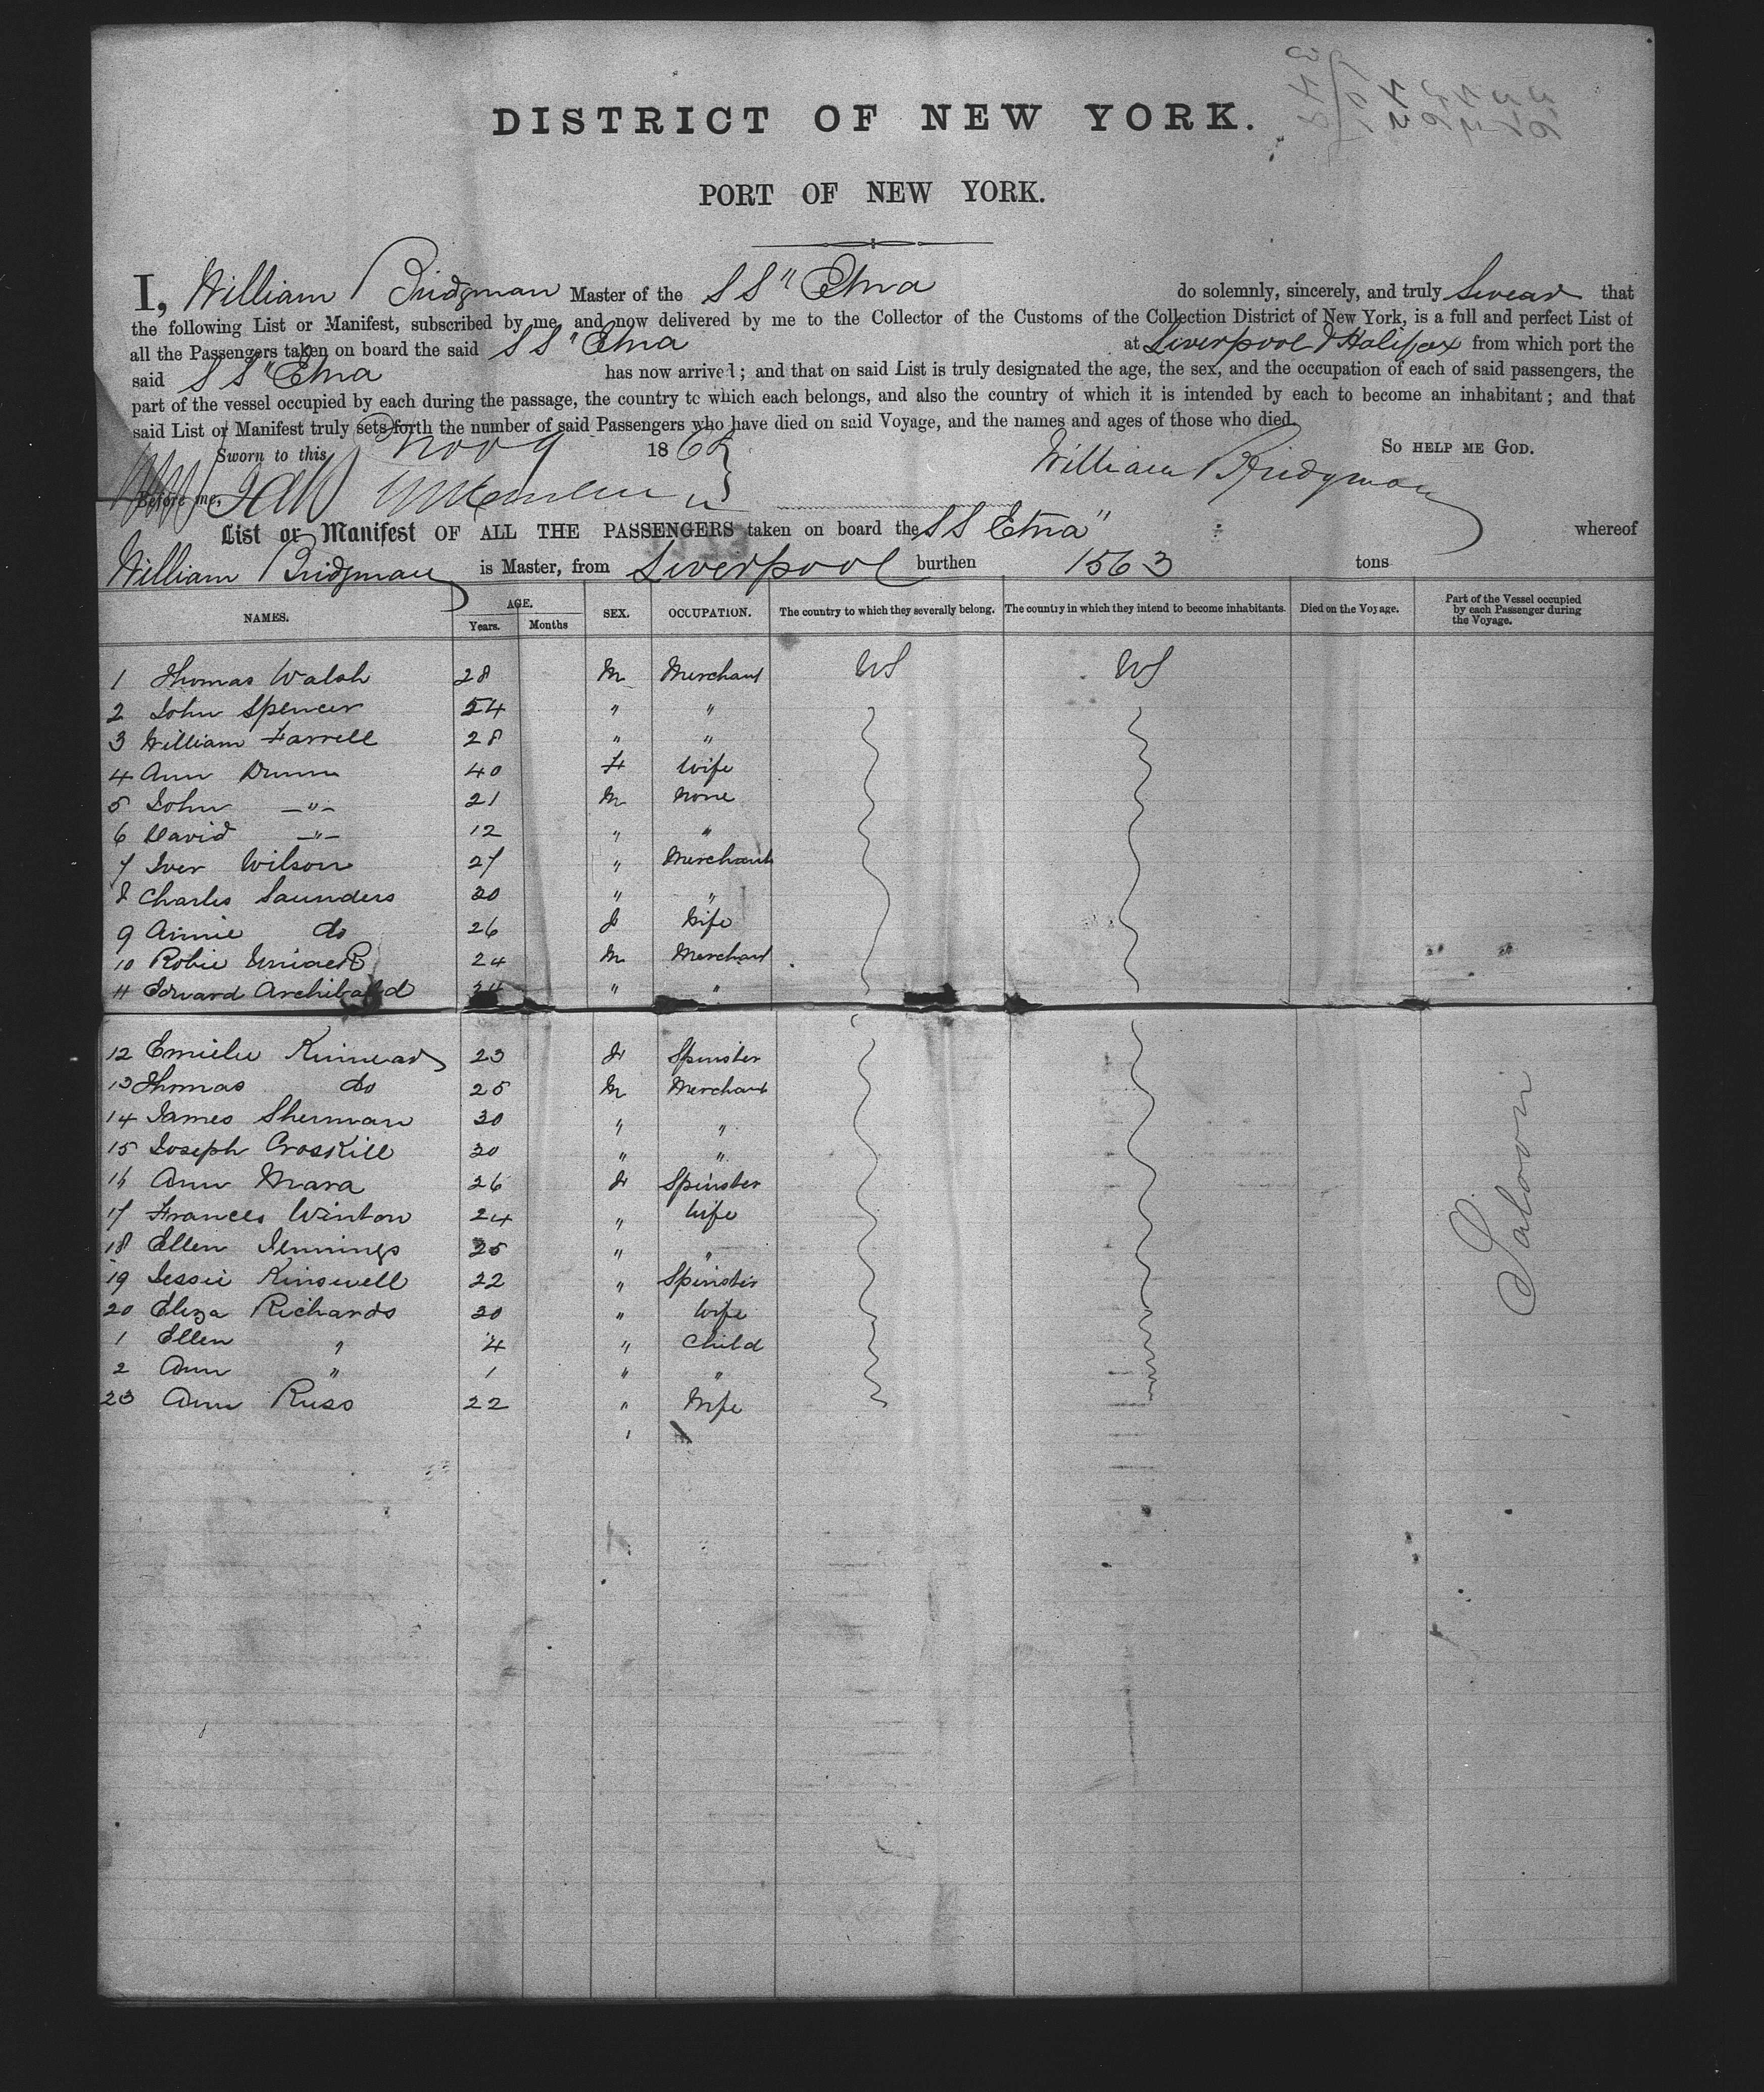 DISTRICT OF NEW YORK.
PORT OF NEW YORK.
I, William Bridgman Master of the S S "Etna do solemnly, sincerely, and truly Swear that
the following List or Manifest, subscribed by me, and now delivered by me to the Collector of the Customs of the Collection District of New York, is a full and perfect List of
all the Passengers taken on board the said S S "Etna at Liverpool & Halifax from which port the
said S S "Etna has now arrived; and that on said List is truly designated the age, the sex, and the occupation of each of said passengers, the
part of the vessel occupied by each during the passage, the country to which each belongs, and also the country of which it is intended by each to become an inhabitant; and that
said List or Manifest truly sets forth the number of said Passengers who have died on said Voyage, and the names and ages of those who died.
Sworn to this Nov 9 186 So help me God.
William Bridgman
Before me,
List or Manifest OF ALL THE PASSENGERS taken on board the S S Etna" whereof
William Bridgman is Master, from Liverpool burthen 1563 tons
NAMES. AGE. Years. Months SEX. OCCUPATION. The country to which they severally belong. The country in which they intend to become inhabitants. Died on the Voyage. Part of the Vessel occupied by each Passenger during the Voyage.
1 Thomas Walsh 28 M Merchant US US
2 John Spencer 54 " "
3 William Farrell 28 " "
4 Ann Dunn 40 F Wife
5 John —"— 21 M None
6 David —"— 12 " "
7 Iver Wilson 27 " Merchant
8 Charles Saunders 30 " "
9 Annie do 26 F Wife
10 Robie Uniack 24 M Merchant
11 Edward Archibald " "
12 Emilie Kinnear 23 F Spinster
13 Thomas do 25 M Merchant
14 James Sherman 30 " "
15 Joseph Croskill 30 " "
16 Ann Mara 26 F Spinster
17 Frances Winton 24 " Wife
18 Ellen Jennings 25 " "
19 Jessie Kinswell 22 " Spinster
20 Eliza Richards 30 " Wife
1 Ellen " 4 " Child
2 Ann " 1 " "
23 Ann Russ 22 " Wife
Saloon